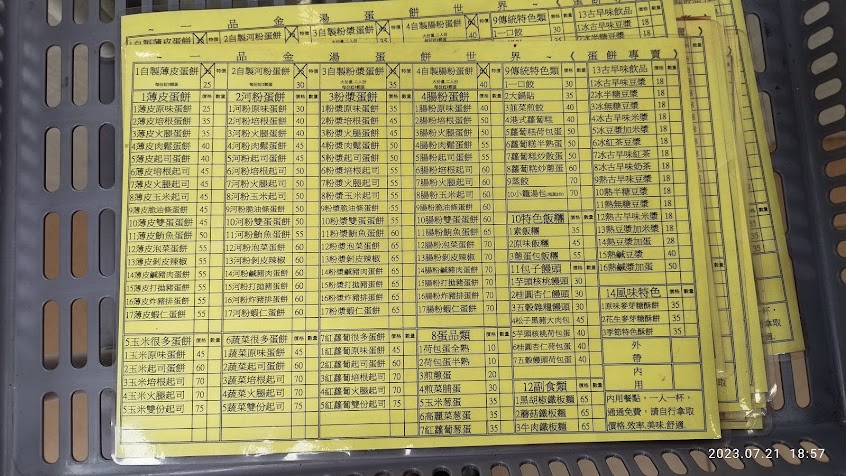 ~ 一 品 金 湯 蛋 餅 世 界 ~ 《 蛋 餅 專 賣 》
1自製薄皮蛋餅 特價 25
2自製河粉蛋餅 特價 30
3自製粉漿蛋餅 特價 35
4自製腸粉蛋餅 特價 40
1薄皮蛋餅 價格 數量
1薄皮原味蛋餅 25
2薄皮培根蛋餅 35
3薄皮火腿蛋餅 35
4薄皮肉鬆蛋餅 40
5薄皮起司蛋餅 40
6薄皮培根起司 45
7薄皮火腿起司 45
8薄皮玉米起司 45
9薄皮脆油條蛋餅 45
10薄皮雙蛋蛋餅 50
11薄皮鮪魚蛋餅 50
12薄皮泡菜蛋餅 55
13薄皮剝皮辣椒 55
14薄皮鹹豬肉蛋餅 55
15薄皮打拋豬蛋餅 55
16薄皮炸豬排蛋餅 55
17薄皮蝦仁蛋餅 55
2河粉蛋餅 價格 數量
1河粉原味蛋餅 30
2河粉培根蛋餅 40
3河粉火腿蛋餅 40
4河粉肉鬆蛋餅 45
5河粉起司蛋餅 45
6河粉培根起司 50
7河粉火腿起司 50
8河粉玉米起司 50
9河粉脆油條蛋餅 50
10河粉雙蛋蛋餅 55
11河粉鮪魚蛋餅 55
12河粉泡菜蛋餅 60
13河粉剝皮辣椒 60
14河粉鹹豬肉蛋餅 60
15河粉打拋豬蛋餅 60
16河粉炸豬排蛋餅 60
17河粉蝦仁蛋餅 60
3粉漿蛋餅 價格 數量
1粉漿原味蛋餅 35
2粉漿培根蛋餅 45
3粉漿火腿蛋餅 45
4粉漿肉鬆蛋餅 50
5粉漿起司蛋餅 50
6粉漿培根起司 55
7粉漿火腿起司 55
8粉漿玉米起司 55
9粉漿脆油條蛋餅 55
10粉漿雙蛋蛋餅 60
11粉漿鮪魚蛋餅 60
12粉漿泡菜蛋餅 65
13粉漿剝皮辣椒 65
14粉漿鹹豬肉蛋餅 65
15粉漿打拋豬蛋餅 65
16粉漿炸豬排蛋餅 65
17粉漿蝦仁蛋餅 65
4腸粉蛋餅 價格 數量
1腸粉原味蛋餅 40
2腸粉培根蛋餅 50
3腸粉火腿蛋餅 50
4腸粉肉鬆蛋餅 55
5腸粉起司蛋餅 55
6腸粉培根起司 60
7腸粉火腿起司 60
8腸粉玉米起司 60
9腸粉脆油條蛋餅 60
10腸粉雙蛋蛋餅 60
11腸粉鮪魚蛋餅 65
12腸粉泡菜蛋餅 70
13腸粉剝皮辣椒 70
14腸粉鹹豬肉蛋餅 70
15腸粉打拋豬蛋餅 70
16腸粉炸豬排蛋餅 70
17腸粉蝦仁蛋餅 70
5玉米很多蛋餅 價格 數量
1玉米原味蛋餅 45
2玉米起司蛋餅 60
3玉米培根起司 70
4玉米火腿起司 70
5玉米雙份起司 75
6蔬菜很多蛋餅 價格 數量
1蔬菜原味蛋餅 45
2蔬菜起司蛋餅 60
3蔬菜培根起司 70
4蔬菜火腿起司 70
5蔬菜雙份起司 75
7紅蘿蔔很多蛋餅 價格 數量
1紅蘿蔔原味蛋餅 45
2紅蘿蔔起司蛋餅 60
3紅蘿蔔培根起司 70
4紅蘿蔔火腿起司 70
5紅蘿蔔雙份起司 75
8蛋品類 價格 數量
1荷包蛋全熟 10
2荷包蛋半熟 10
3煎蔥蛋 20
4煎菜脯蛋 30
5玉米蔥蛋
6高麗菜蔥蛋
7紅蘿蔔蔥蛋
9傳統特色類 價格 數量
1一口餃 30
2大鍋貼 35
3韮菜煎餃 40
4港式蘿蔔糕 30
5蘿蔔糕荷包蛋 40
6蘿蔔糕半熟蛋 40
7蘿蔔糕炒散蛋 50
8蘿蔔糕炒蔥蛋 60
9蒸餃 70
10小籠湯包 70
10特色飯糰 價格 數量
1素飯糰 35
2原味飯糰 35
3蔥蛋包飯糰
11包子饅頭 價格 數量
1芋頭核桃饅頭 30
2桂圓杏仁饅頭 30
3五穀雜糧饅頭 30
4松子黑豬大肉包
5芋頭核桃荷包蛋
6桂圓杏仁荷包蛋
7五穀饅頭荷包蛋
12副食類 價格 數量
1黑胡椒鐵板麵 65
2蘑菇鐵板麵 65
3牛肉鐵板麵 65
13古早味飲品 價格 數量
1冰古早味豆漿 18
2冰半糖豆漿 18
3冰無糖豆漿 18
4冰古早味米漿 18
5冰豆漿加米漿 18
6冰紅茶豆漿 18
7冰古早味紅茶 18
8冰古早味奶茶 18
9熱古早味豆漿 18
10熱半糖豆漿 18
11熱無糖豆漿 18
12熱古早味米漿 18
13熱豆漿加米漿 18
14熱豆漿加蛋 28
15熱鹹豆漿 40
16熱鹹漿加蛋 50
14風味特色 價格 數量
1原味麥芽糖酥餅 35
2花生麥芽糖酥餅 35
3季節特色酥餅 35
外
帶
內
用
內用餐點，一人一杯，
通通免費，請自行拿取
價格.效率.美味.舒適.
2023.07.21 18:57